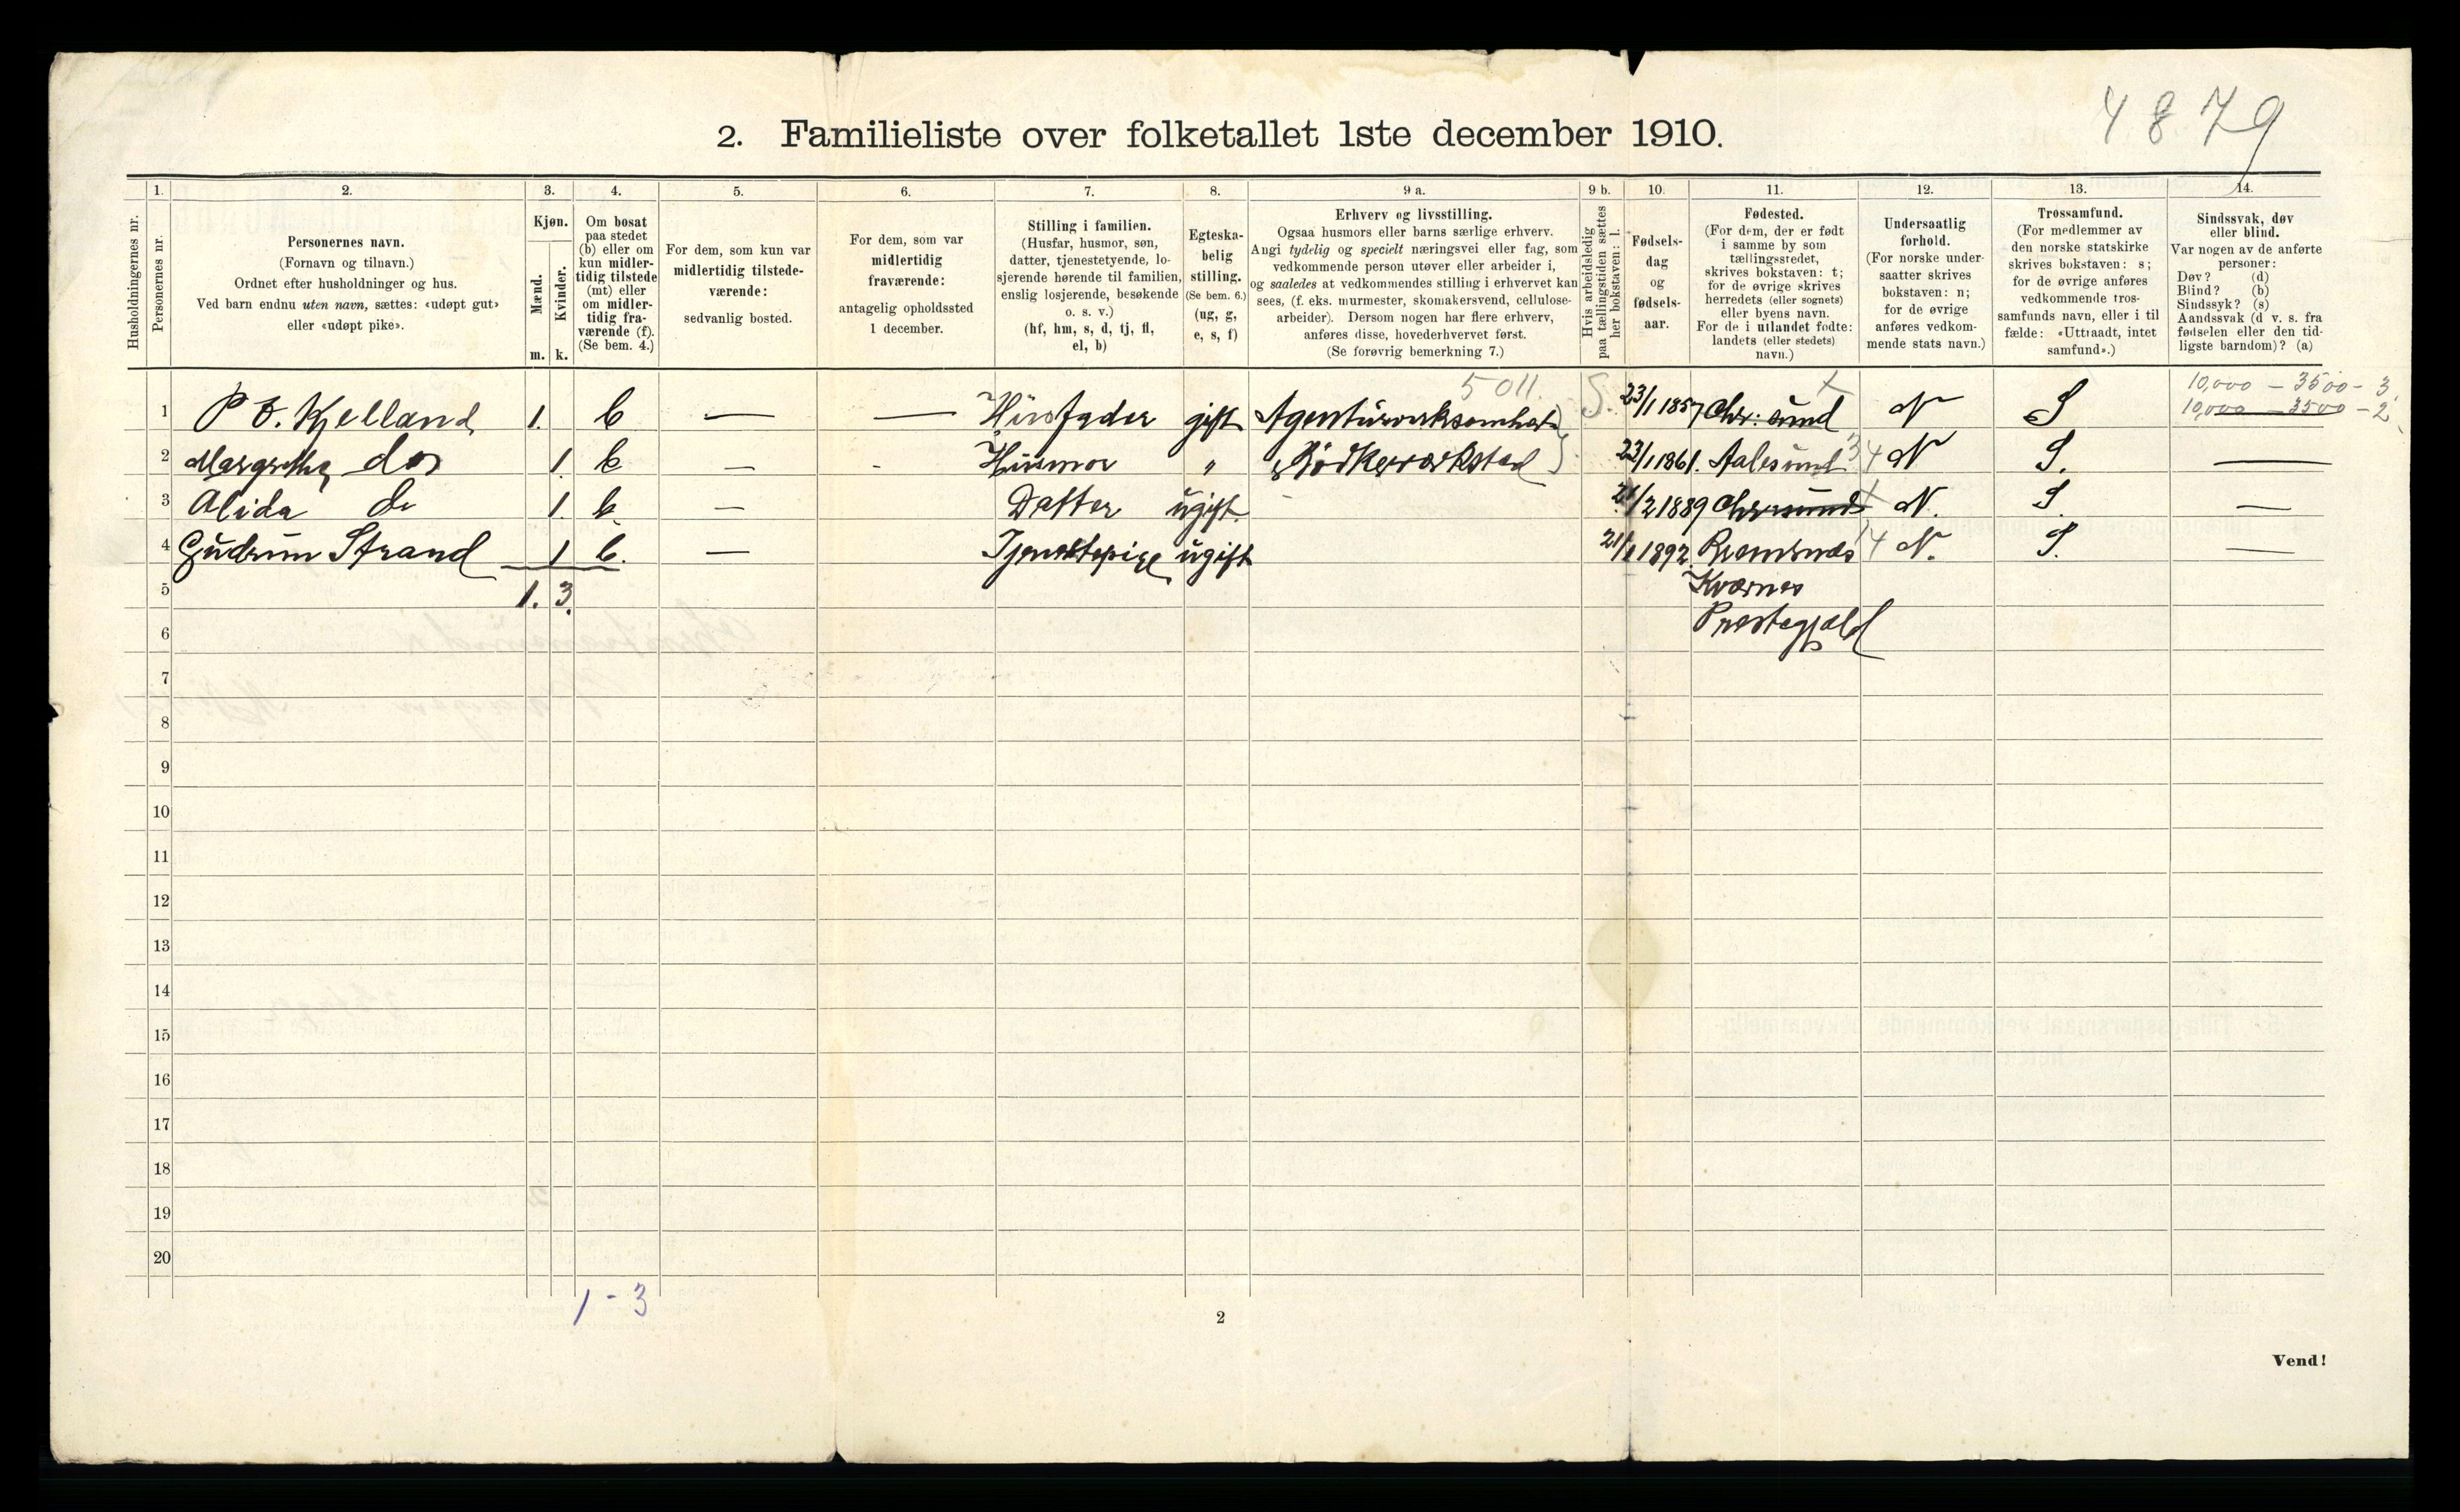 4879
2. Familieliste over folketallet 1ste december 1910.
1. 2. 3. 4. 5. 6. 7. 8. 9 a. 9 b. 10. 11. 12. 13. 14.
Husholdningernes nr.
Personernes nr.
Personernes navn.
(Fornavn og tilnavn.)
Ordnet efter husholdninger og hus.
Ved barn endnu uten navn, sættes: «udøpt gut»
eller «udøpt pike».
Kjøn.
Mænd.
Kvinder.
m. k.
Om bosat
paa stedet
(b) eller om
kun midler-
tidig tilstede
(mt) eller
om midler-
tidig fra-
værende (f).
(Se bem. 4.)
For dem, som kun var
midlertidig tilstede-
værende:
sedvanlig bosted.
For dem, som var
midlertidig
fraværende:
antagelig opholdssted
1 december.
Stilling i familien.
(Husfar, husmor, søn,
datter, tjenestetyende, lo-
sjerende hørende til familien,
enslig losjerende, besøkende
o. s. v.)
(hf, hm, s, d, tj, fl,
el, b)
Egteska-
belig
stilling.
(Se bem. 6.)
(ug, g,
e, s, f)
Erhverv og livsstilling.
Ogsaa husmors eller barns særlige erhverv.
Angi tydelig og specielt næringsvei eller fag, som
vedkommende person utøver eller arbeider i,
og saaledes at vedkommendes stilling i erhvervet kan
sees, (f. eks. murmester, skomakersvend, cellulose-
arbeider). Dersom nogen har flere erhverv,
anføres disse, hovederhvervet først.
(Se forøvrig bemerkning 7.)
Hvis arbeidsledig
paa tællingstiden sættes
her bokstaven: l.
Fødsels-
dag
og
fødsels-
aar.
Fødested.
(For dem, der er født
i samme by som
tællingsstedet,
skrives bokstaven: t;
for de øvrige skrives
herredets (eller sognets)
eller byens navn.
For de i utlandet fødte:
landets (eller stedets)
navn.)
Undersaatlig
forhold.
(For norske under-
saatter skrives
bokstaven: n;
for de øvrige
anføres vedkom-
mende stats navn.)
Trossamfund.
(For medlemmer av
den norske statskirke
skrives bokstaven: s;
for de øvrige anføres
vedkommende tros-
samfunds navn, eller i til
fælde: «Uttraadt, intet
samfund».)
Sindssvak, døv
eller blind.
Var nogen av de anførte
personer:
Døv? (d)
Blind? (b)
Sindssyk? (s)
Aandssvak (d v. s. fra
fødselen eller den tid-
ligste barndom)? (a)
5011. S. x 10,000 — 3500 - 3
10,000 — 3500 - 2
1 P Kjelland 1. b — — Husfader gift Agenturvirksomhed 23/1 1857 Chr. sund N S
2 Margrethe do 1. b — - Husmor " & Bødkerværksted 23/1 1861. Aalesund 34 N S. —
3 Alida do 1. b. — Datter ugift. 21/2 1889 Chrsund x N. S. —
4 Gudrun Strand 1 b. — Tjenestepige ugift 1892 Bremsnæs 14 N. S. —
5 1. 3. Kværnes
6 Præstegjæld
7
8
9
10
11
12
13
14
15
16
17
18
19
20
1 - 3
2
Vend!